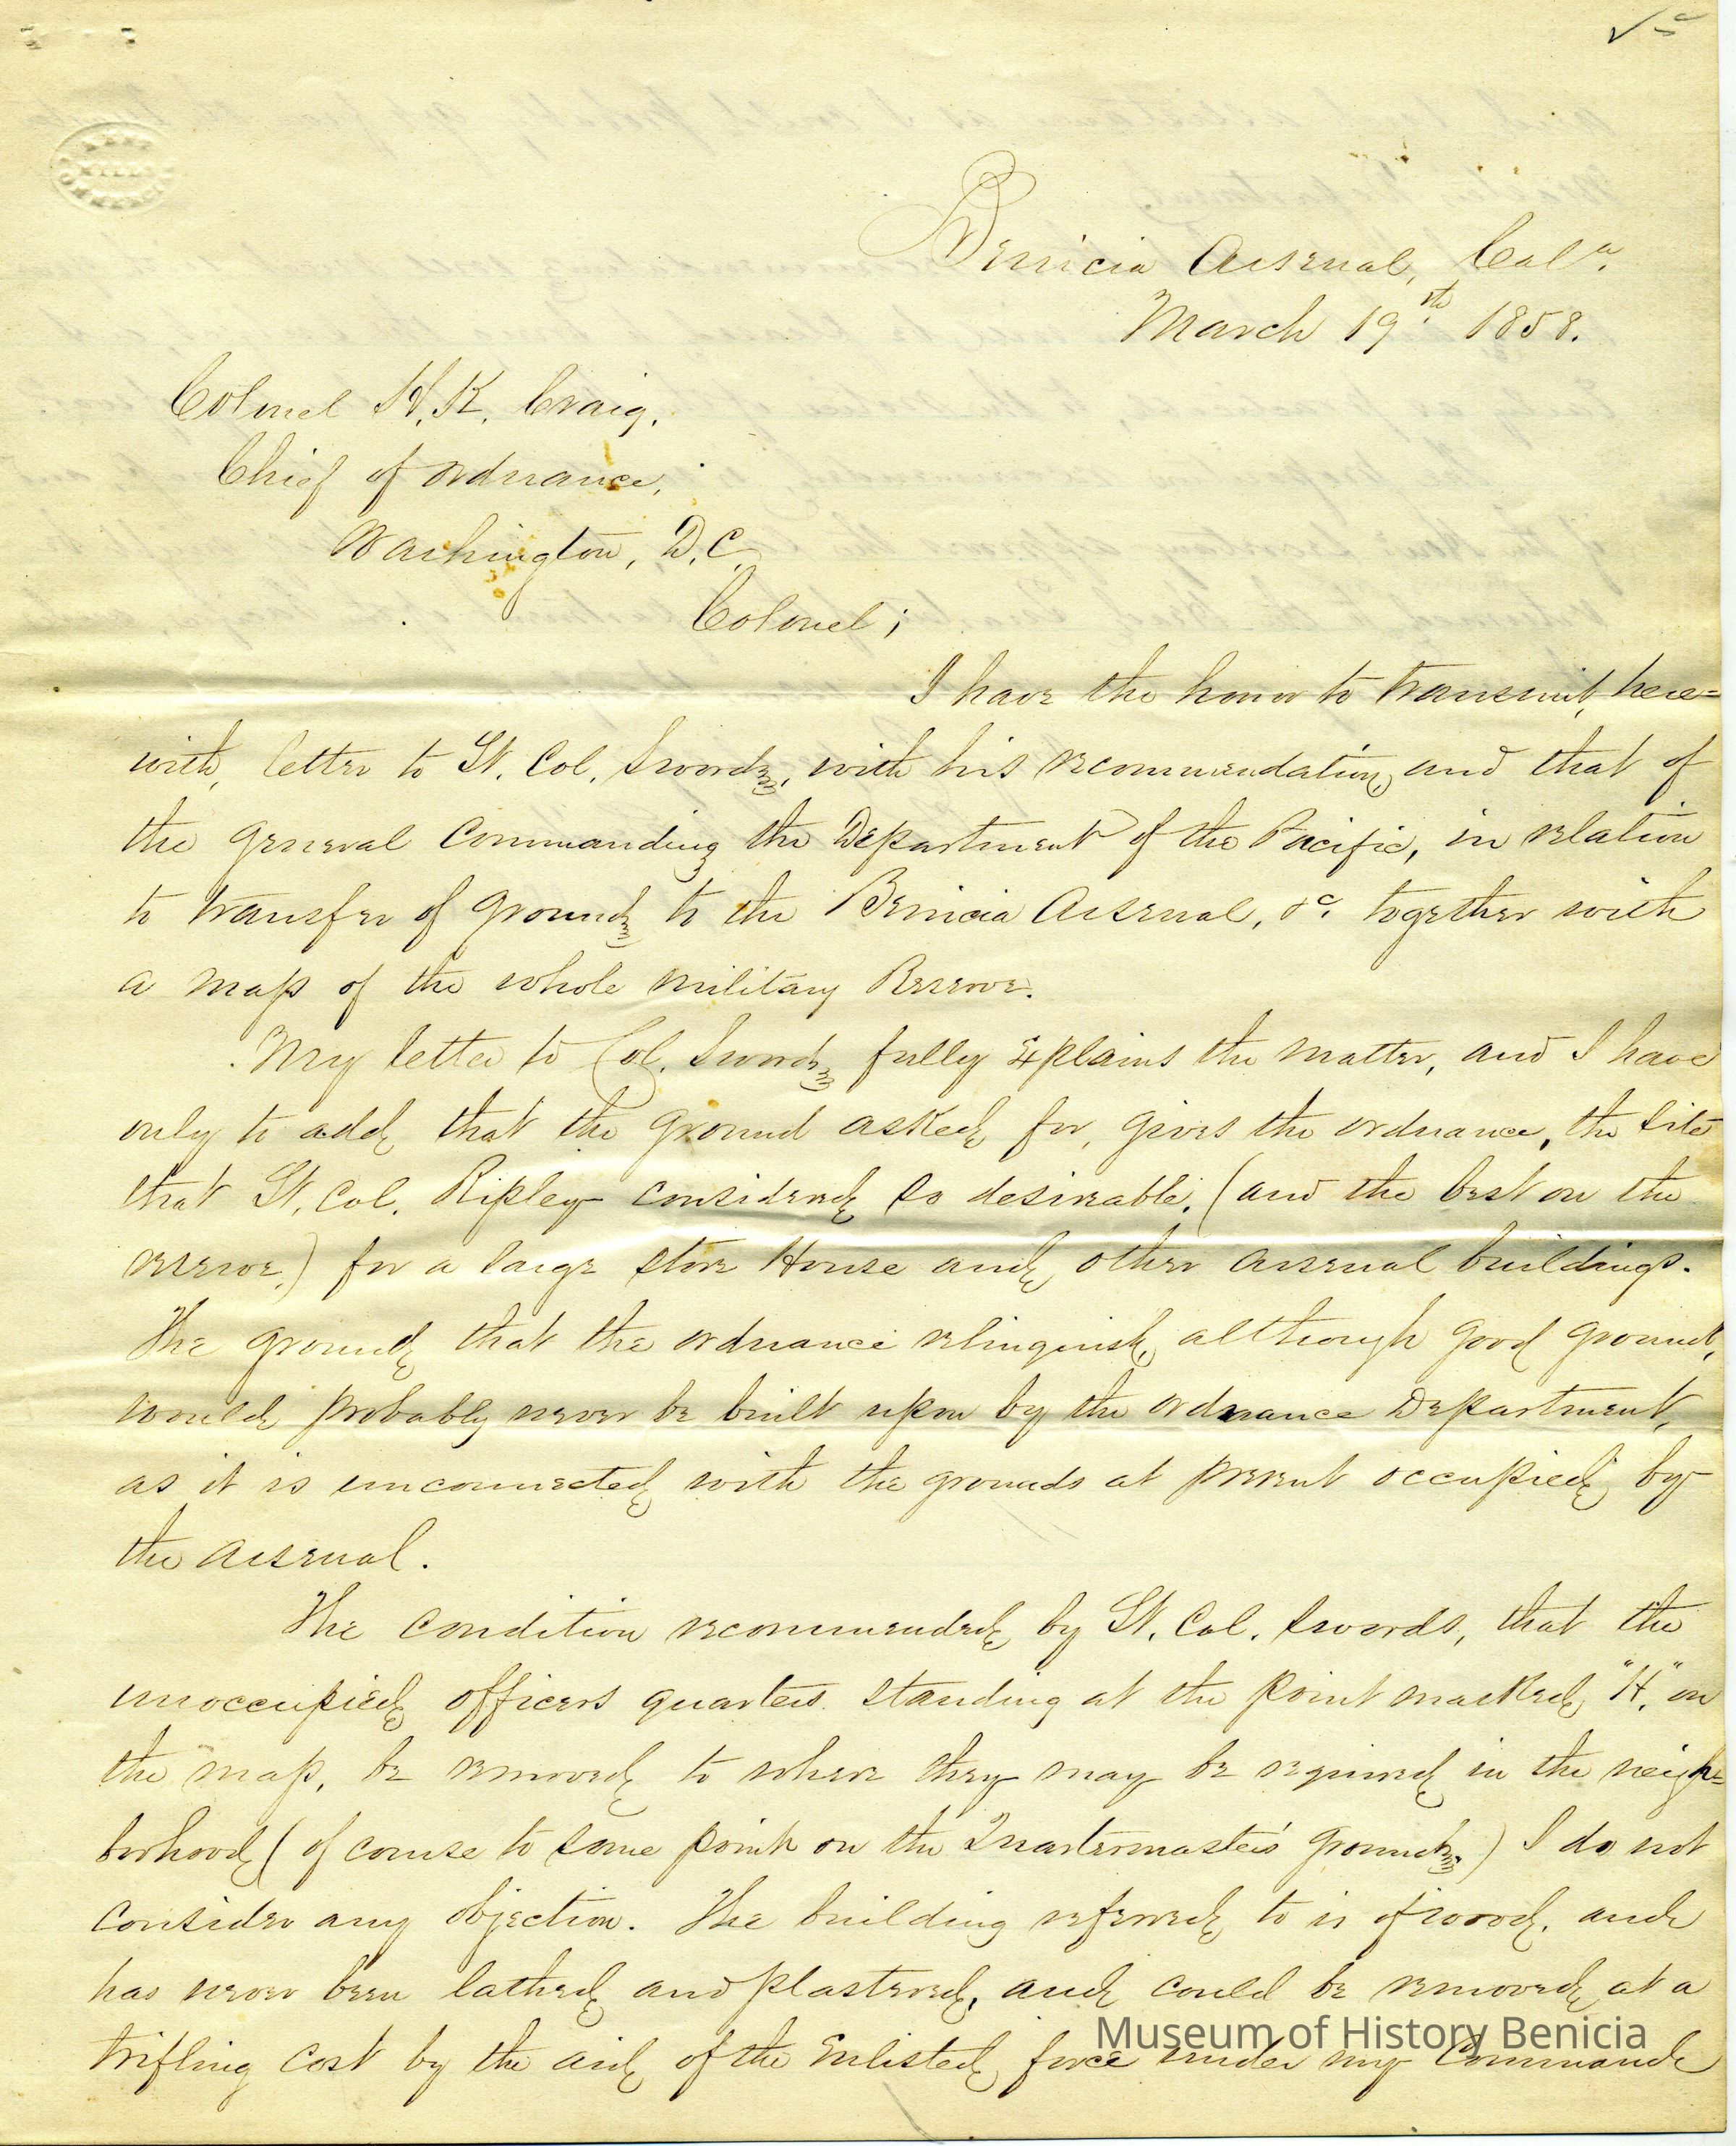 Benicia Arsenal, Cala.
March 19th. 1858.
Colonel H. K. Craig,
Chief of Ordnance,
Washington, D.C.
Colonel;
I have the honor to transmit, here=
with, letter to Lt. Col. Swords, with his recommendation, and that of
the General Commanding the Department of the Pacific, in relation
to transfer of grounds to the Benicia Arsenal, &c. together with
a map of the whole military Reserve.
My letter to Col. Swords fully explains the matter, and I have
only to add, that the ground asked for, gives the ordnance, the site
that Lt. Col. Ripley considered so desirable, (and the best on the
reserve,) for a large store House and other arsenal buildings.
The ground that the ordnance relinquish, although good ground,
would probably never be built upon by the Ordnance Department,
as it is unconnected with the grounds at present occupied by
the Arsenal.
The condition recommended by Lt. Col. Swords, that the
unoccupied officers quarters standing at the point marked "H," on
the map, be removed to where they may be required in the neigh=
borhood (of course to some point on the Quartermaster's grounds,) I do not
consider any objection. The building referred to is of wood, and
has never been lathed and plastered, and could be removed at a
trifling cost by the aid of the Enlisted force under my Command
Museum of History Benicia